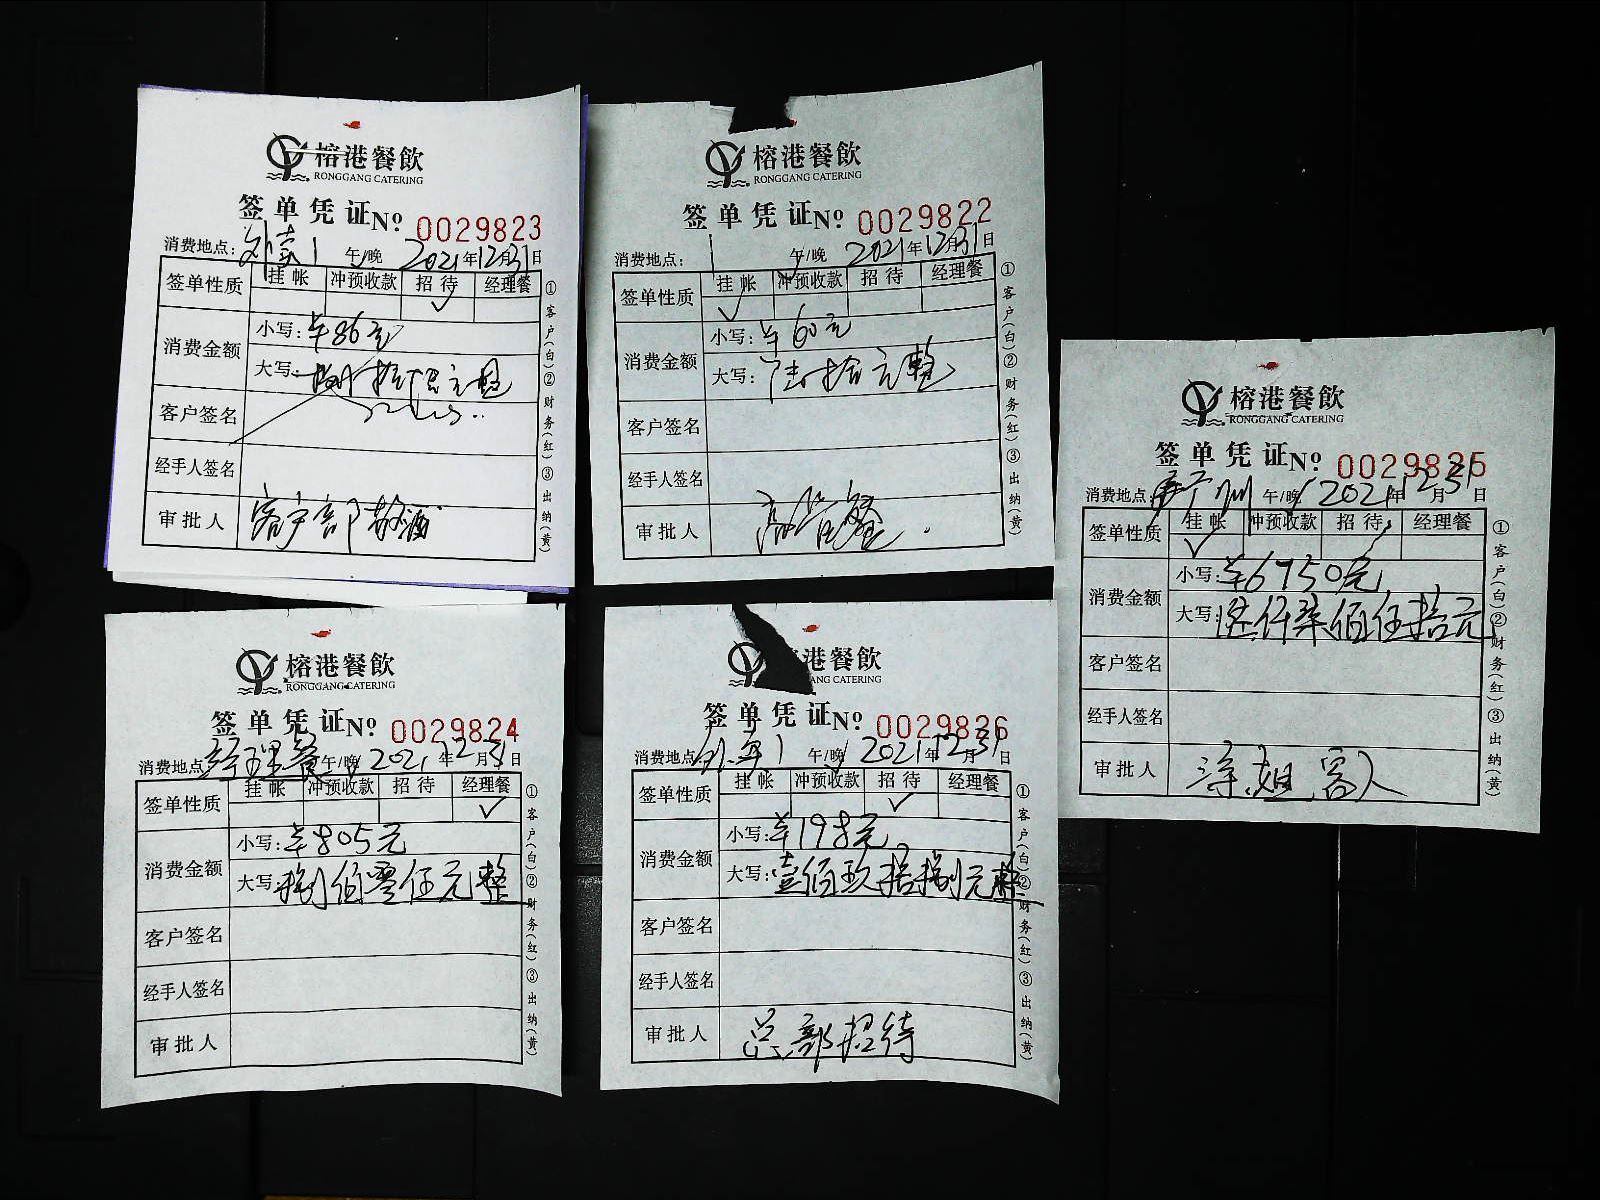 榕港餐飲
RONGGANG CATERING
签单凭证No 0029823
消费地点: 午/晚 2021年12月31日
签单性质 挂帐 冲预收款 招待 经理餐
✓
消费金额 小写: 羊86元
大写: 捌拾元整
客户签名
经手人签名
审批人 客户部
①客户(白)②财务(红)③出纳(黄)
榕港餐飲
RONGGANG CATERING
签单凭证No 0029822
消费地点: 午/晚 2021年12月31日
签单性质 挂帐 冲预收款 招待 经理餐
✓
消费金额 小写: 羊60元
大写: 陆拾元整
客户签名
经手人签名
审批人 高管餐
①客户(白)②财务(红)③出纳(黄)
榕港餐飲
RONGGANG CATERING
签单凭证No 0029825
消费地点: 广州 午/晚 2021年12月31日
签单性质 挂帐 冲预收款 招待 经理餐
✓
消费金额 小写: 羊6750元
大写: 陆仟柒佰伍拾元
客户签名
经手人签名
审批人 涂姐客人
①客户(白)②财务(红)③出纳(黄)
榕港餐飲
RONGGANG CATERING
签单凭证No 0029824
消费地点 经理餐 午/晚 2021年12月31日
签单性质 挂帐 冲预收款 招待 经理餐
✓
消费金额 小写: 羊805元
大写: 捌佰零伍元整
客户签名
经手人签名
审批人
①客户(白)②财务(红)③出纳(黄)
港餐飲
RONGGANG CATERING
签单凭证No 0029826
消费地点 午/晚 2021年12月31日
签单性质 挂帐 冲预收款 招待 经理餐
✓
消费金额 小写: 羊198元
大写: 壹佰玖拾捌元整
客户签名
经手人签名
审批人 总部招待
①客户(白)②财务(红)③出纳(黄)